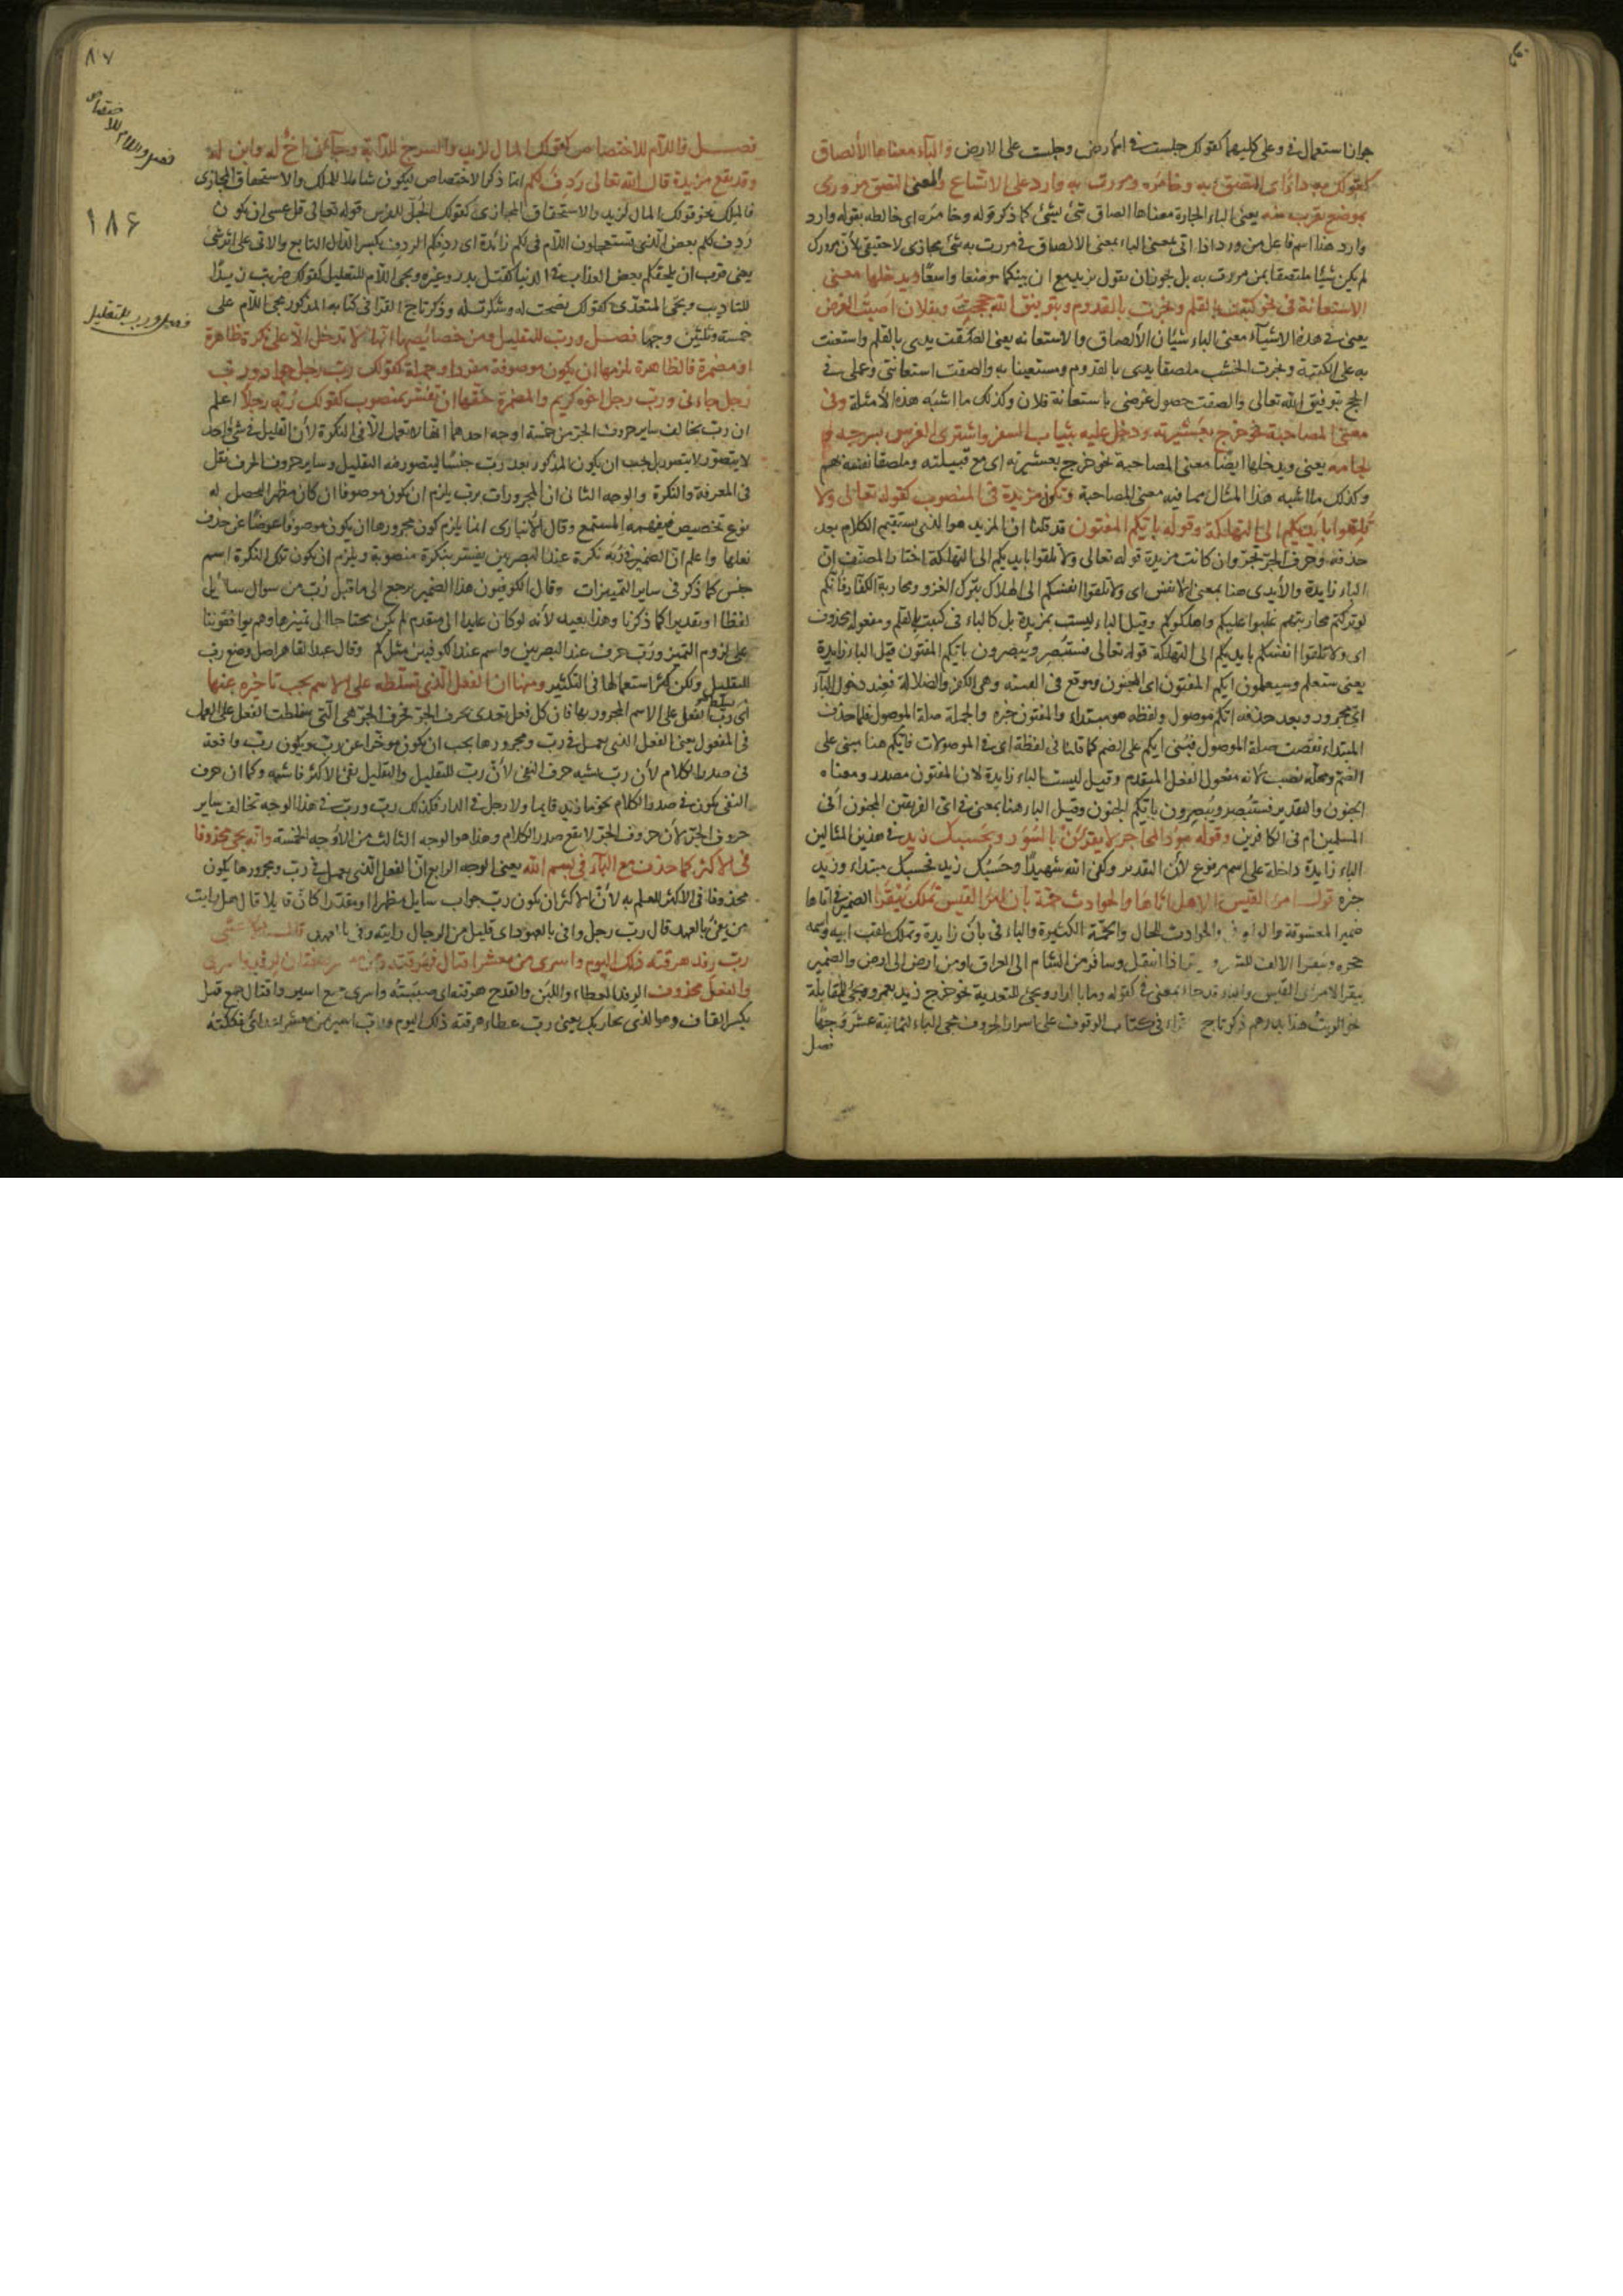 جواز استعمال في وعلى كليهما كقولك جلست في الارض وجلست على الارض والباء معناها الألصاق
كقولك به داء اى التصق به وخامره ومررت به وارد على الاتساع والمعنى التصق مرورى
بموضع يقرب منه يعنى الباء الجارة معناها الصاق شئ بشئ كما ذكر قوله وخامره اى خالطه بقوله وارد
وارد هنا اسم فاعل من ورد اذا اتى بمعنى الباء بمعنى الالصاق في مررت به شئ مجازى لا حقيقى لأن مرورك
لم يكن شيئا ملتصقا بمن مررت به بل يجوز ان يقول بزيد مع ان بينكما موضعا واسعا ويدخلها معنى
الاستعانة في نحو كتبت بالقلم ونجرت بالقدوم وبتوفيق الله حججت وبفلان اصبت الغرض
يعنى في هذه الاشياء معنى الباء شيئان الألصاق والاستعانه يعنى الصقت يدى بالقلم واستعنت
به على الكتبة ونجرت الخشب ملصقا يدى بالقدوم ومستعينا به والصقت استعانتى وعملى في
الحج بتوفيق الله تعالى والصقت حصول غرضى باستعانة فلان وكذلك ما اشبه هذه الأمثلة وفى
معنى المصاحبة نحو خرج بعشيرته ودخل عليه بثياب السفر واشترى الفرس بسرجه و
لجامه يعنى ويدخلها ايضا معنى المصاحبة نحو خرج بعشيرته اى مع قبيلته وملصقا نفسه بهم
وكذلك ما اشبه هذا المثال مما فيه معنى المصاحبة وتكون مزيدة في المنصوب كقوله تعالى ولا
تلقوا بايديكم الى التهلكة وقوله بايكم المفتون قد قلنا ان المزيد هو الذى يستقيم الكلام بعد
حذفه وحرف الجر تجر وان كانت مزيدة قوله تعالى ولا تلقوا بايديكم الى التهلكة اختار المصنف ان
الباء زايدة والأيدى هنا بمعنى الانفس اى ولا تلقوا انفسكم الى الهلاك بترك الغزو ومحاربة الكفار فانكم
لو تركتم محاربتهم غلبوا عليكم واهلكوكم وقيل الباء ليست بمزيدة بل كالباء في كتبت بالقلم ومفعوله محذوف
اى ولا تلقوا انفسكم بايديكم الى التهلكة قوله تعالى فستبصر ويبصرون بايكم المفتون قيل الباء زايدة
يعنى ستعلم وسيعلمون ايكم المفتون اى المجنون وموقع في الفتنه وهى الكفر والضلالة فعند دخول الباء
اى مجرور وبعد حذفه ايكم موصول ولفظه هو مبتداء والمفتون خبره والجملة صلة الموصول فلما حذف
المبتداء نقصت صلة الموصول فبنى ايكم على الضم كما قلنا في لفظة اى في الموصولات فايكم هنا مبنى على
الضم ومحله نصب لأنه مفعول الفعل المتقدم وقيل ليست الباء زايدة لان المفتون مصدر ومعناه
الجنون والتقدير فستبصر ويبصرون بايكم الجنون وقيل الباء هنا بمعنى في اى الفريقين المجنون أفى
المسلمين ام فى الكافرين وقوله سود المحاجر لا يقرأن بالسور وبحسبك زيد في هذين المثالين
الباء زايدة داخلة على اسم مرفوع لأن التقدير وكفى الله شهيدا وحسبك زيد فحسبك مبتداء وزيد
خبره قول امرئ القيس الا هل اتاها والحوادث جمة بان امرأ القيس بن تملك بيقرا الضمير في اتاها
ضمير المعشوقة والواو في والحوادث للحال والجمة الكثيرة والباء فى بأن زايدة وتملك لقب ابيه واسمه
حجر وبيقرا الالف للشعر اذا انتقل وسافر من الشام الى العراق او من ارض الى ارض والضمير
بيقر الامرئ القيس والباء قد جاء بمعنى في كقوله وما بالدار ويجئ للتعدية نحو خرج زيد بعمرو ويجئ للمقابلة
نحو اشتريت هذا بدرهم ذكر تاج القراء فى كتاب الوقوف على اسرار الحروف مجى الباء لثمانية عشر وجها
فصل
٨٧
فصل واللام للاختصاص
١٨۶
فصل ورب للتقليل
فصل واللام للاختصاص كقولك المال لزيد والسرج للدابة وجاءنى اخ له وابن له
وقد يقع مزيدة قال الله تعالى ردف لكم انما ذكر الاختصاص ليكون شاملا للملك والاستحقاق المجازى
فالملك نحو قولك المال لزيد والاستحقاق المجازى كقولك الجل للفرس قوله تعالى قل عسى ان يكون
ردف لكم بعض الذى تستعجلون اللام في لكم زائدة اى ردفكم الردف بكسر الدال التابع والاتى على اثر شئ
يعنى قرب ان يلحقكم بعض العذاب في الدنيا كقتل بدر وغيره ويجى اللام للتعليل كقولك ضربت زيدا
للتاديب ويجى المتعدى كقولك نصحت له وشكرت له وذكر تاج القراء فى كتابه المذكور مجى اللام على
خمسة وثلثين وجها فصل ورب للتقليل ومن خصائصها انها لا تدخل الا على نكرة ظاهرة
او مضمرة فالظاهرة يلزمها ان يكون موصوفة بمفرد او جملة كقولك رب رجل جواد ورب
رجل جاءنى ورب رجل ابوه كريم والمضمرة حقها ان تفسر بمنصوب كقولك ربه رجلا اعلم
ان رب يخالف ساير حروف الجر من خمسة اوجه احدها انها لا تعمل الا في النكرة لأن التقليل في شئ واحد
لا يتصور بل يجب ان يكون المذكور بعد رب جنسا ليتصور فيه التقليل وساير حروف الجر تعمل
فى المعرفة والنكرة والوجه الثانى ان المجرورات برب يلزم ان يكون موصوفا ان كان مظهرا ليحصل له
نوع تخصيص فيفهمه المستمع وقال الأنبارى انما يلزم كون مجرورها ان يكون موصوفا عوضا عن حذف
فعلها واعلم ان الضمير في ربه نكرة عند البصريين يفسر بنكرة منصوبة ويلزم ان يكون تلك النكرة اسم
جنس كما ذكر في ساير التمييزات وقال الكوفيون هذا الضمير يرجع الى ما قبل رب من سوال سائل
لفظا او تقديرا كما ذكرنا وهذا بعيد لأنه لو كان عايدا الى متقدم لم يكن محتاجا الى تمييزها وهم يوافقوننا
على لزوم التمييز ورب حرف عند البصريين واسم عند الكوفيين مثل كم وقال عبد القاهر اصل وضع رب
للتقليل ولكن كثر استعمالها فى التكثير ومنها ان الفعل الذى تسلطه على الاسم يجب تاخره عنها
اى رب تسلط الفعل على الاسم المجرور بها فان كل فعل تعدى بحرف الجر فحرف الجر هى التى سلطت الفعل على العمل
فى المفعول يعنى الفعل الذى يعمل في رب ومجرورها يجب ان يكون موخرا عن رب ويكون رب واقعة
فى صدر الكلام لأن رب يشبه حرف النفى لأن رب للتقليل والتقليل نفى الاكثر فاشبهه وكما ان حرف
النفى يكون في صدر الكلام نحو ما زيد قايما ولا رجل فى الدار فكذلك رب ورب في هذا الوجه تخالف ساير
حروف الجر لأن حروف الجر لا يقع صدر الكلام وهذا هو الوجه الثالث من الاوجه الخمسة وانه يجى محذوفا
فى الاكثر كما حذف مع الباء فى بسم الله يعنى الوجه الرابع ان الفعل الذى يعمل في رب ومجرورها يكون
محذوفا فى الاكثر للعلم به لأن الاكثر ان يكون رب جواب سايل مظهرا او مقدرا كان قايلا قال هل رايت
من يفى بالعهد قال رب رجل وافى بالعهود اى قليل من الرجال رايته وفى بالعهد قال الاعشى
رب رفد هرقته ذلك اليوم واسرى من معشر اقتال فهرقته ومن معشر صفتان لرفد واسرى
والفعل محذوف الرفد العطاء واللبن والقدح هرقته اى صببته واسرى جمع اسير واقتال جمع قتل
بكسر القاف وهو الذى يحاربك يعنى رب عطاء هرقته ذلك اليوم ورب اسير من معشر اعدائى فككته